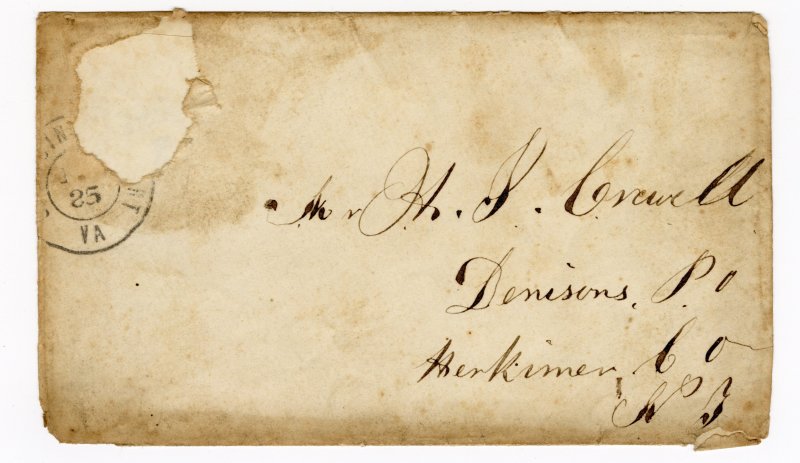 25
VA
Mr H. J. Crewell
Denisons, P. O
Herkimer Co
N Y